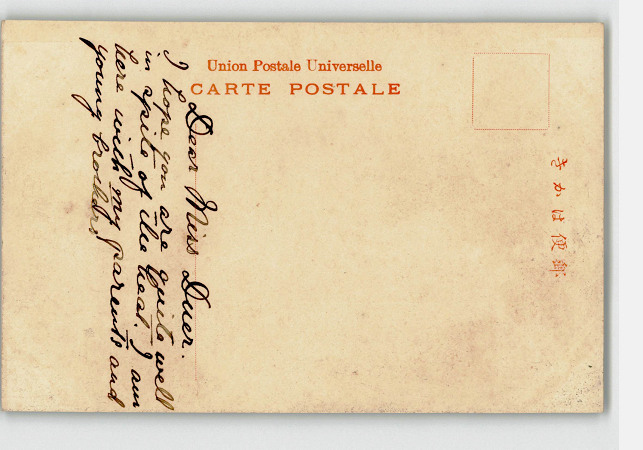 Union Postale Universelle
CARTE POSTALE
きかは便郵
Dear Miss Duer.
I hope you are quite well
in spite of the heat. I am
here with my parents and
young brother.